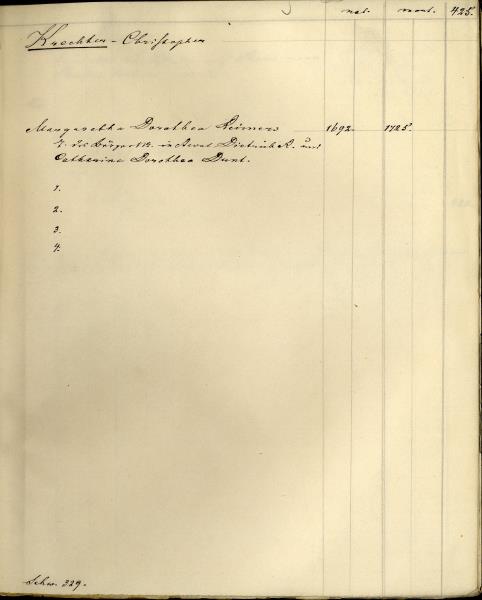 nat. mort. 425.
Krechter - Christopher
Margaretha Dorothea Reimers 1692. 1725.
T. des Bürgers R. in Reval Dietrich R. und
Catharina Dorothea Dunt.
1.
2.
3.
4.
Schw. 329.